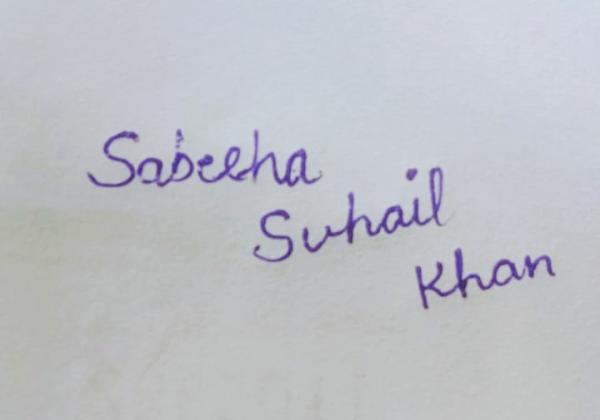 Sabeeha
Suhail
Khan